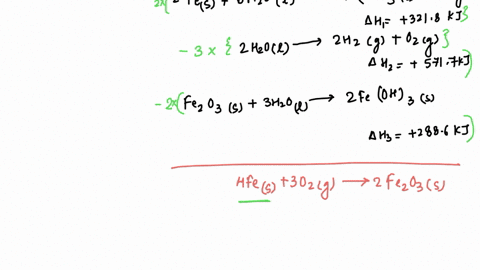 ΔH₁ = +321.8 KJ}
- 3 × { 2H₂O(l) ⟶ 2H₂ (g) + O₂(g)}
ΔH₂ = + 571.7KJ)
- 2×(Fe₂O₃ (s) + 3H₂O(l) ⟶ 2Fe (OH)₃ (s)
ΔH₃ = +288.6 KJ)
4Fe(s) + 3O₂(g) ⟶ 2Fe₂O₃(s)